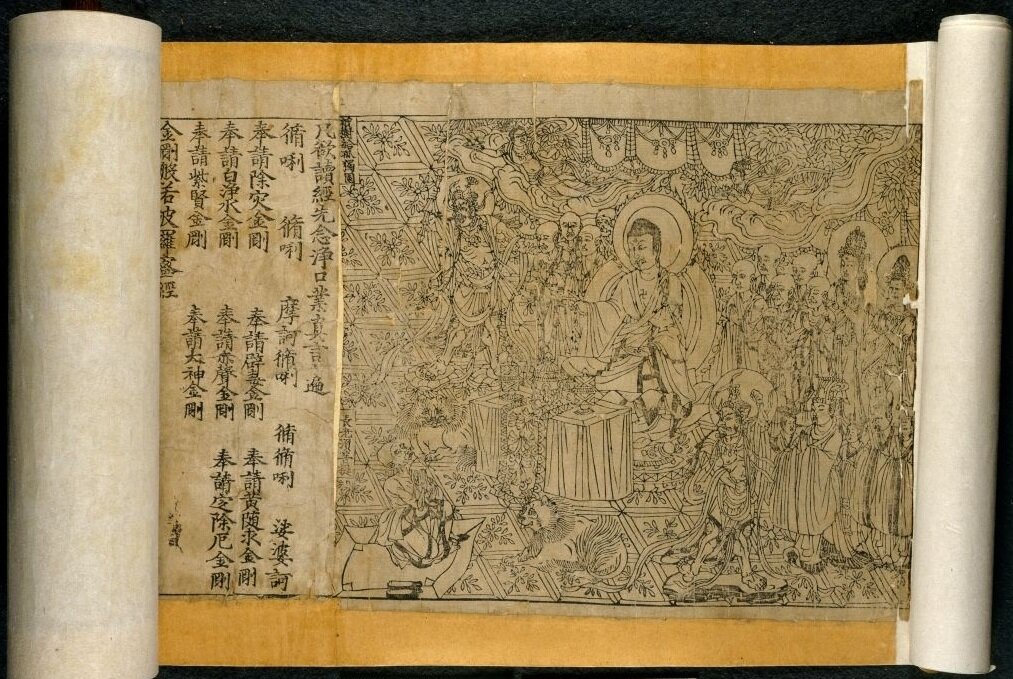 祇樹給孤獨園
長老須
凡欲讀經先念淨口業真言一遍
脩唎 脩唎 摩訶脩唎 脩脩唎 娑婆訶
奉請除灾金剛 奉請辟毒金剛 奉請黃隨求金剛
奉請白淨水金剛 奉請赤聲金剛 奉請定除厄金剛
奉請紫賢金剛 奉請大神金剛
金剛般若波羅蜜經